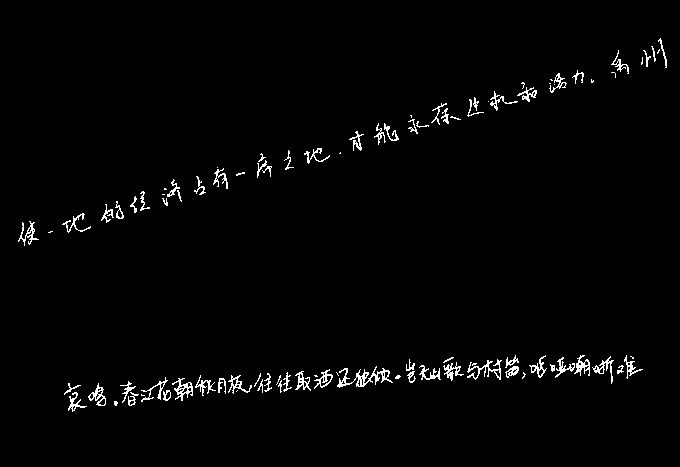 使一地的经济占有一席之地,才能永葆生机和活力。禹州
哀鸣。春江花朝秋月夜,往往取酒还独倾。岂无山歌与村笛,呕哑嘲哳难